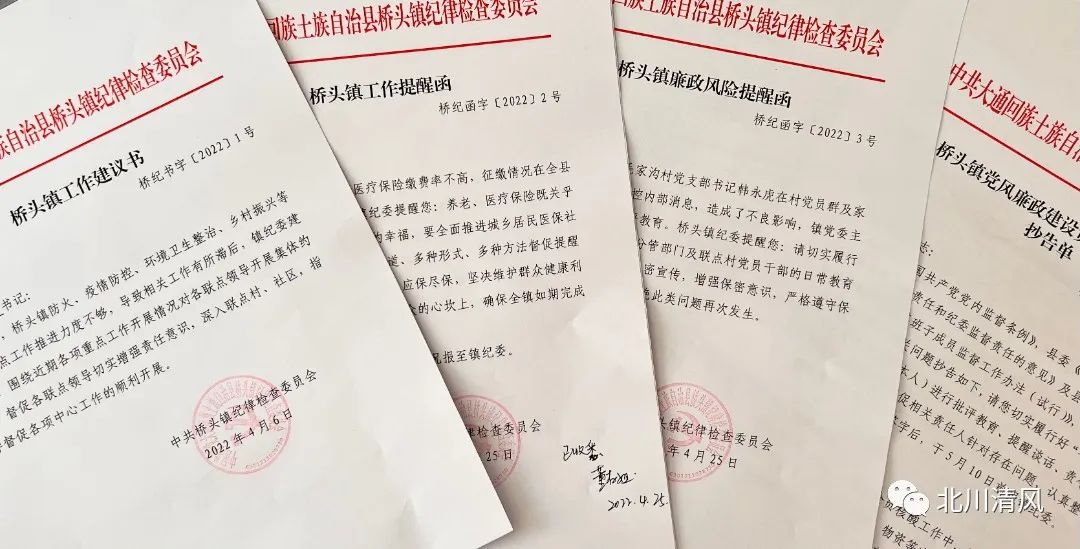 族自治县桥头镇纪律检查委员会
桥头镇工作建议书
桥纪书字〔2022〕1号
书记:
，桥头镇防火、疫情防控、环境卫生整治、乡村振兴等
点工作推进力度不够，导致相关工作有所滞后，镇纪委建
围绕近期各项重点工作开展情况对各联点领导开展集体约
督促各联点领导切实增强责任意识，深入联点村、社区，指
督促各项中心工作的顺利开展。
中共桥头镇纪律检查委员会
2022年4月6日
回族土族自治县桥头镇纪律检查委员会
桥头镇工作提醒函
桥纪函字〔2022〕2号
医疗保险缴费率不高，征缴情况在全县
纪委提醒您：养老、医疗保险既关乎
的幸福，要全面推进城乡居民医保社
道、多种形式、多种方法督促提醒
应保尽保，坚决维护群众健康利
的心坎上，确保全镇如期完成
况报至镇纪委。
律检查委员会
25日
已收悉
2022.4.25.
回族土族自治县桥头镇纪律检查委员会
桥头镇廉政风险提醒函
桥纪函字〔2022〕3号
家沟村党支部书记韩永虎在村党员群及家
控内部消息，造成了不良影响，镇党委主
教育。桥头镇纪委提醒您：请切实履行
分管部门及联点村党员干部的日常教育
密宣传，增强保密意识，严格遵守保
免此类问题再次发生。
头镇纪律检查委员会
年4月25日
中共大通回族土族自治
桥头镇党风廉政建设
抄告单
志：
国共产党党内监督条例》，县委《
责任和纪委监督责任的意见》及县
班子成员监督工作办法（试行）》，
问题抄告如下，请您切实履行好“
本人）进行批评教育、提醒谈话、责
促相关责任人针对存在问题，认真整
字后，于5月10日
纪委。
员核酸工作中，
物资等
北川清风